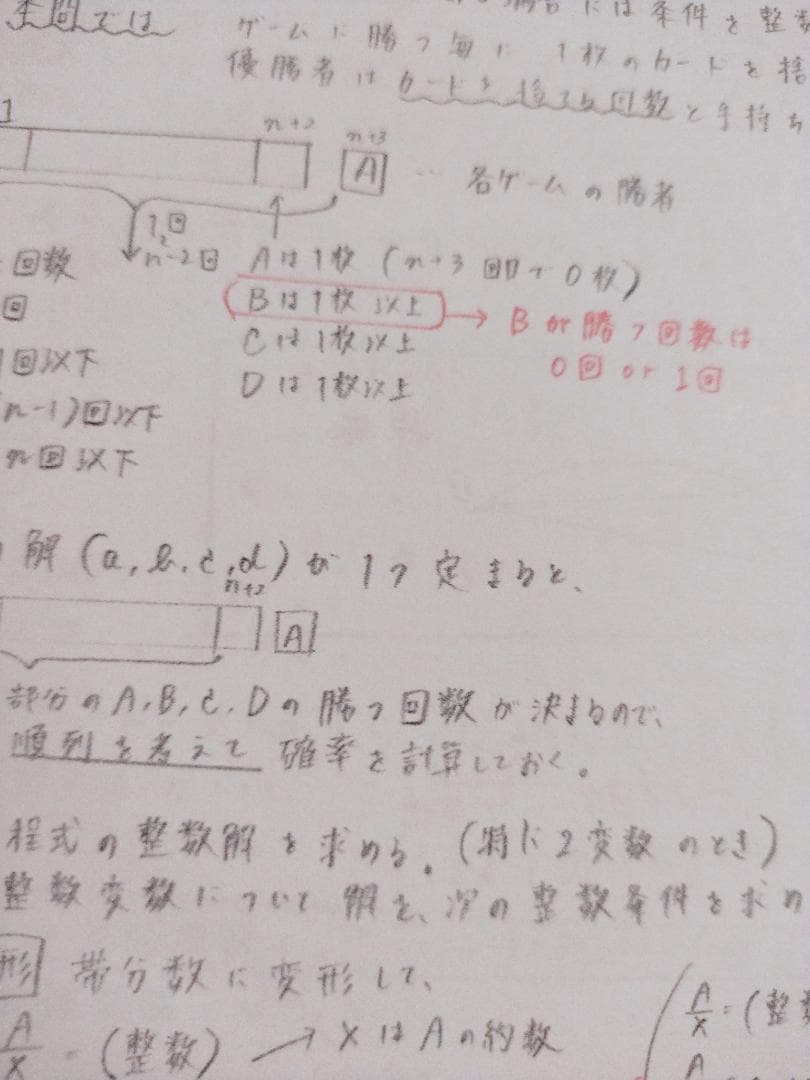 本問では
には条件を整数
ゲームに勝つ毎に 1枚のカードを捨
優勝者は カードを捨てる回数 と手持ち
1 n+2 n+3
A … 各ゲームの勝者
1回
n-2回
回数 Aは1枚 (n+3回目で0枚)
回 Bは1枚以上 → Bが勝つ回数は
0回 or 1回
回以下 Cは1枚以上
(n-1)回以下 Dは1枚以上
n回以下
解 (a,b,c,d) が1つ定まると、
n+2
A
部分のA,B,C,Dの勝つ回数が決まるので、
順列を考えて 確率を計算しておく。
程式の整数解を求める。(特に2変数のとき)
整数変数について 解き、次の整数条件を求め
形 帯分数に変形して、
A/X = (整数) → XはAの約数
A/X = (整数
A